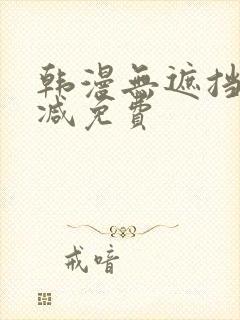 韩漫無遮挡
減免費
戒喑